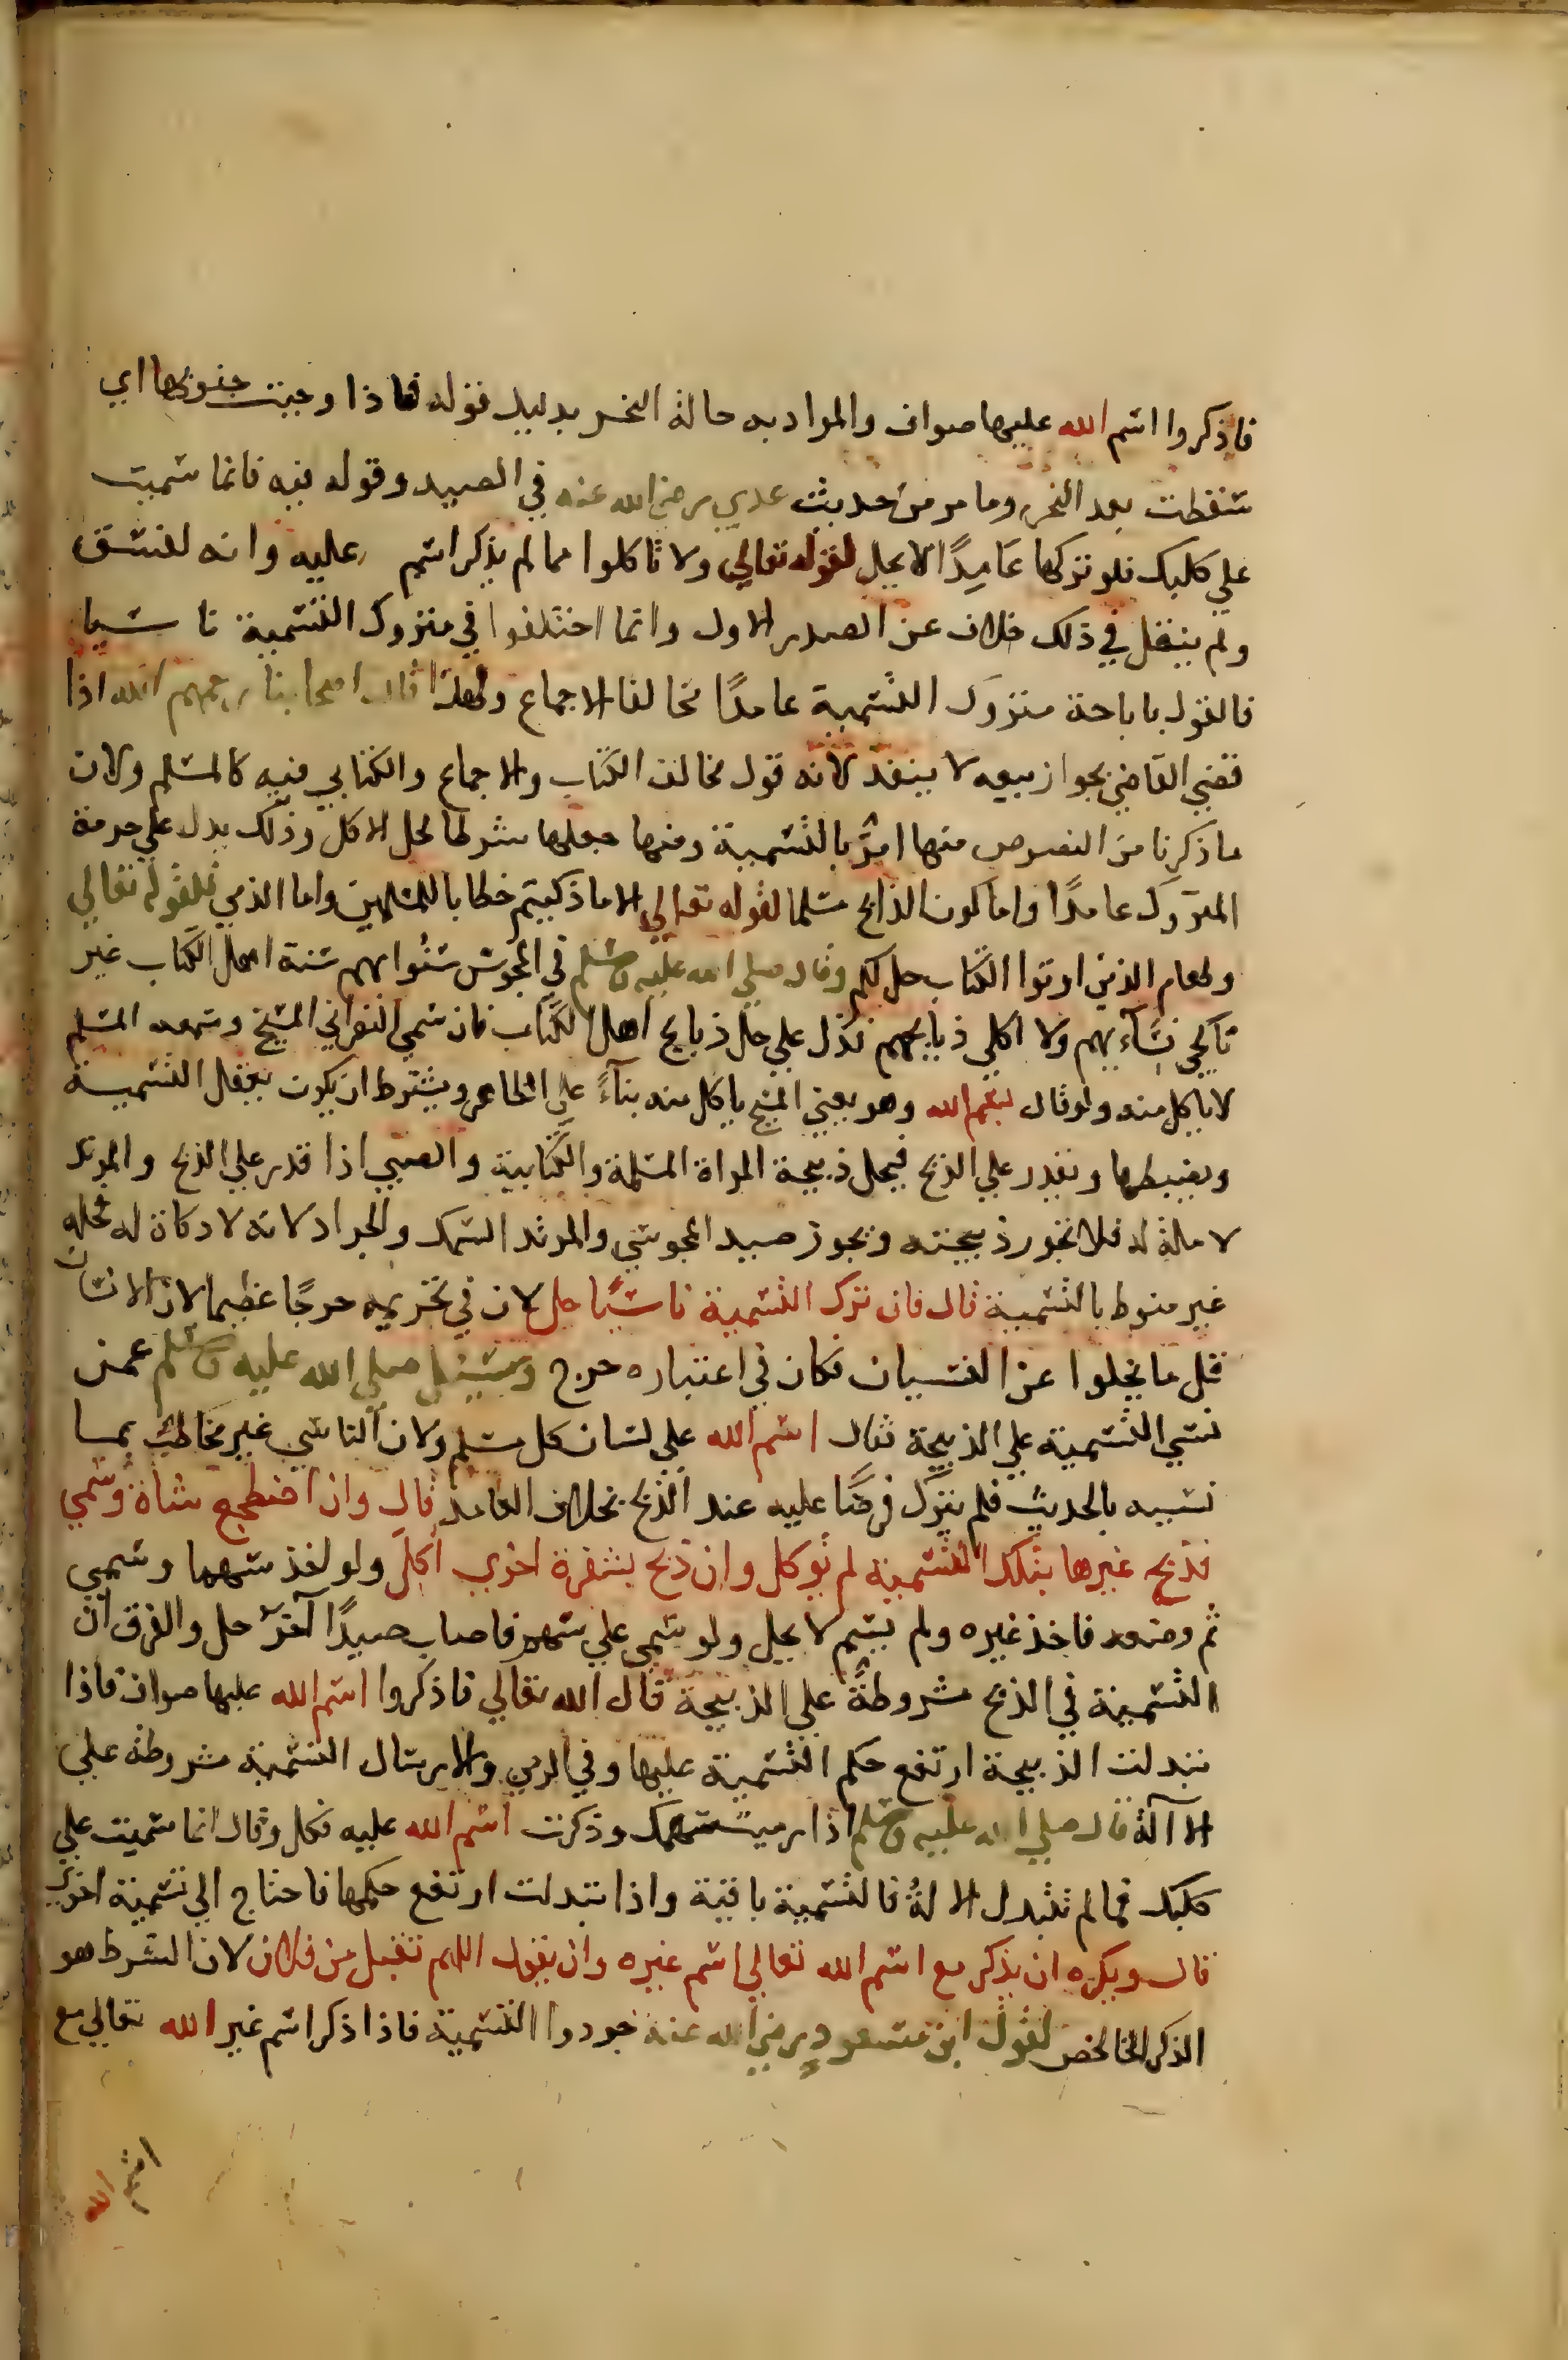 فاذكروا اسم الله عليها صواف والمراد به حالة النحر بدليل قوله فاذا وجبت جنوبها اي
سقطت بعد النحر وما مر من حديث عدي رضي الله عنه في الصيد وقوله فيه فانما سميت
علي كلبك فلو تركها عامدًا لا يحل لقوله تعالي ولا تاكلوا مما لم يذكر اسم عليه وانه لفسق
ولم ينقل في ذلك خلاف عن الصدر الاول وانما اختلفوا في متروك التسمية ناسيا
فالقول باباحة متروك التسمية عامدًا مخالفا لاجماع ولهذا قال اصحابنا رحمهم الله اذا
قضي القاضي بجواز بيعه لا ينفذ لانه قول مخالف الكتاب والاجماع والكتابي فيه كالمسلم ولان
ما ذكرنا من النصوص منها امرٌ بالتسمية ومنها جعلها شرطا لحل الاكل وذلك يدل علي حرمة
المتروك عامدًا واما كون الذابح مسلما لقوله تعالي الا ما ذكيتم خطابا للمسلمين واما الذمي فلقوله تعالي
وطعام الذين اوتوا الكتاب حل لكم وقال صلي الله عليه وسلم في المجوس سنوا بهم سنة اهل الكتاب غير
ناكحي نسآءيهم ولا اكلي ذبايحهم فدل علي حل ذبايح اهل الكتاب فان سمي النصراني المسيح وسمعه المسلم
لا ياكل منه ولو قال بسم الله وهو يعني المسيح ياكل منه بنآءً علي الظاهر ويشترط ان يكون يعقل التسمية
ويضبطها ويقدر علي الذبح فيحل ذبيحة المراة المسلمة والكتابية والصبي اذا قدر علي الذبح والمرتد
لا ملة له فلا تجوز ذبيحته ويجوز صيد المجوسي والمرتد السمك والجراد لانه لا ذكاة له فحله
غير منوط بالتسمية قال فان ترك التسمية ناسيًا حل لان في تحريمه حرجًا عظيما لان الانسان
قل ما يخلوا عن النسيان فكان في اعتباره حرج وسئل صلي الله عليه وسلم عمن
نسي التسمية علي الذبيحة فقال اسم الله علي لسان كل مسلم ولان الناسي غير مخاطب بما
نسيه بالحديث فلم يترك فرضًا عليه عند الذبح بخلاف العامد قال وان اضطجع شاة وسمي
فذبح غيرها بتلك التسمية لم توكل وان ذبح بشفرة اخري اكل ولو اخذ سهما وسمي
ثم وضعه فاخذ غيره ولم يسم لا يحل ولو سمي علي سهم فاصاب صيدًا آخر حل والفرق ان
التسمية في الذبح مشروطةٌ علي الذبيحة قال الله تعالي فاذكروا اسم الله عليها صواف فاذا
تبدلت الذبيحة ارتفع حكم التسمية عليها وفي الرمي والارسال التسمية مشروطة علي
الآلة قال صلي الله عليه وسلم اذا رميت سهمك وذكرت اسم الله عليه فكل وقال انما سميت علي
كلبك فما لم تتبدل الالة فالتسمية باقية واذا تبدلت ارتفع حكمها فاحتاج الي تسمية اخري
قال ويكره ان يذكر مع اسم الله تعالي اسم غيره وان يقول اللهم تقبل من فلان لان الشرط هو
الذكر الخالص لقول ابن مسعود رضي الله عنه جردوا التسمية فاذا ذكر اسم غير الله تعالي مع
اسم الله